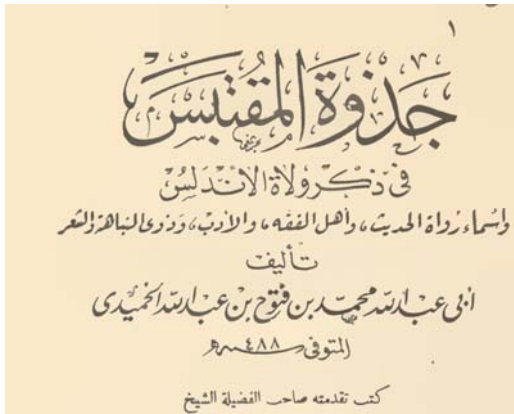 ١
جَذوَة المُقتبسَ
فى ذكر ولاة الاندلسُ
واسماء رواة الحديث، وأهل الفقه، والأدب، وذوى النباهة والشعر
تأليف
أبى عبد الله محمد بن فتوح بن عبد الله الحميدى
المتوفى ٤٨٨ هـ
كتب تقدمته صاحب الفضيلة الشيخ